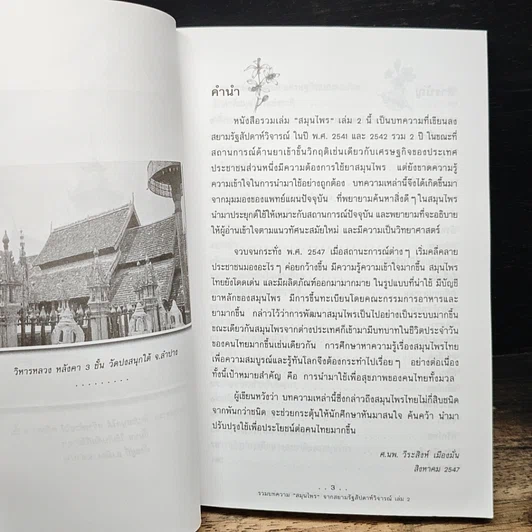 วิหารหลวง หลังคา 3 ชั้น วัดปงสนุกใต้ จ.ลำปาง
คำนำ
หนังสือรวมเล่ม "สมุนไพร" เล่ม 2 นี้ เป็นบทความที่เขียนลง
สยามรัฐสัปดาห์วิจารณ์ ในปี พ.ศ. 2541 และ 2542 รวม 2 ปี ในขณะที่
สถานการณ์ด้านยาเข้าขั้นวิกฤติเช่นเดียวกับเศรษฐกิจของประเทศ
ประชาชนส่วนหนึ่งมีความต้องการใช้ยาสมุนไพร แต่ยังขาดความรู้
ความเข้าใจในการนำมาใช้อย่างถูกต้อง บทความเหล่านี้จึงได้เกิดขึ้นมา
จากมุมมองของแพทย์แผนปัจจุบัน ที่พยายามค้นหาสิ่งดีๆ ในสมุนไพร
นำมาประยุกต์ใช้ให้เหมาะกับสถานการณ์ปัจจุบัน และพยายามที่จะอธิบาย
ให้ผู้อ่านเข้าใจตามแนวทัศนะสมัยใหม่ และมีความเป็นวิทยาศาสตร์
จวบจนกระทั่ง พ.ศ. 2547 เมื่อสถานะการณ์ต่างๆ เริ่มคลี่คลาย
ประชาชนมองอะไรๆ ค่อยกว้างขึ้น มีความรู้ความเข้าใจมากขึ้น สมุนไพร
ไทยยังโดดเด่น และมีผลิตภัณฑ์ออกมามากมาย ในรูปแบบที่น่าใช้ มีบัญชี
ยาหลักของสมุนไพร มีการขึ้นทะเบียนโดยคณะกรรมการอาหารและ
ยามากขึ้น กล่าวไว้ว่าการพัฒนาสมุนไพรเป็นไปอย่างเป็นระบบมากขึ้น
ขณะเดียวกันสมุนไพรจากต่างประเทศก็เข้ามามีบทบาทในชีวิตประจำวัน
ของคนไทยมากขึ้นเช่นเดียวกัน การศึกษาหาความรู้เรื่องสมุนไพรไทย
เพื่อความสมบูรณ์และรู้ทันโลกจึงต้องกระทำไปเรื่อยๆ อย่างต่อเนื่อง
ทั้งนี้เป้าหมายสำคัญ คือ การนำมาใช้เพื่อสุขภาพของคนไทยทั้งมวล
ผู้เขียนหวังว่า บทความเหล่านี้ซึ่งกล่าวถึงสมุนไพรไทยไม่กี่สิบชนิด
จากพันกว่าชนิด จะช่วยกระตุ้นให้นักศึกษาหันมาสนใจ ค้นคว้า นำมา
ปรับปรุงใช้เพื่อประโยชน์ต่อคนไทยมากขึ้น
ศ.นพ. วีระสิงห์ เมืองมั่น
สิงหาคม 2547
..3..
รวมบทความ "สมุนไพร" จากสยามรัฐสัปดาห์วิจารณ์ เล่ม 2